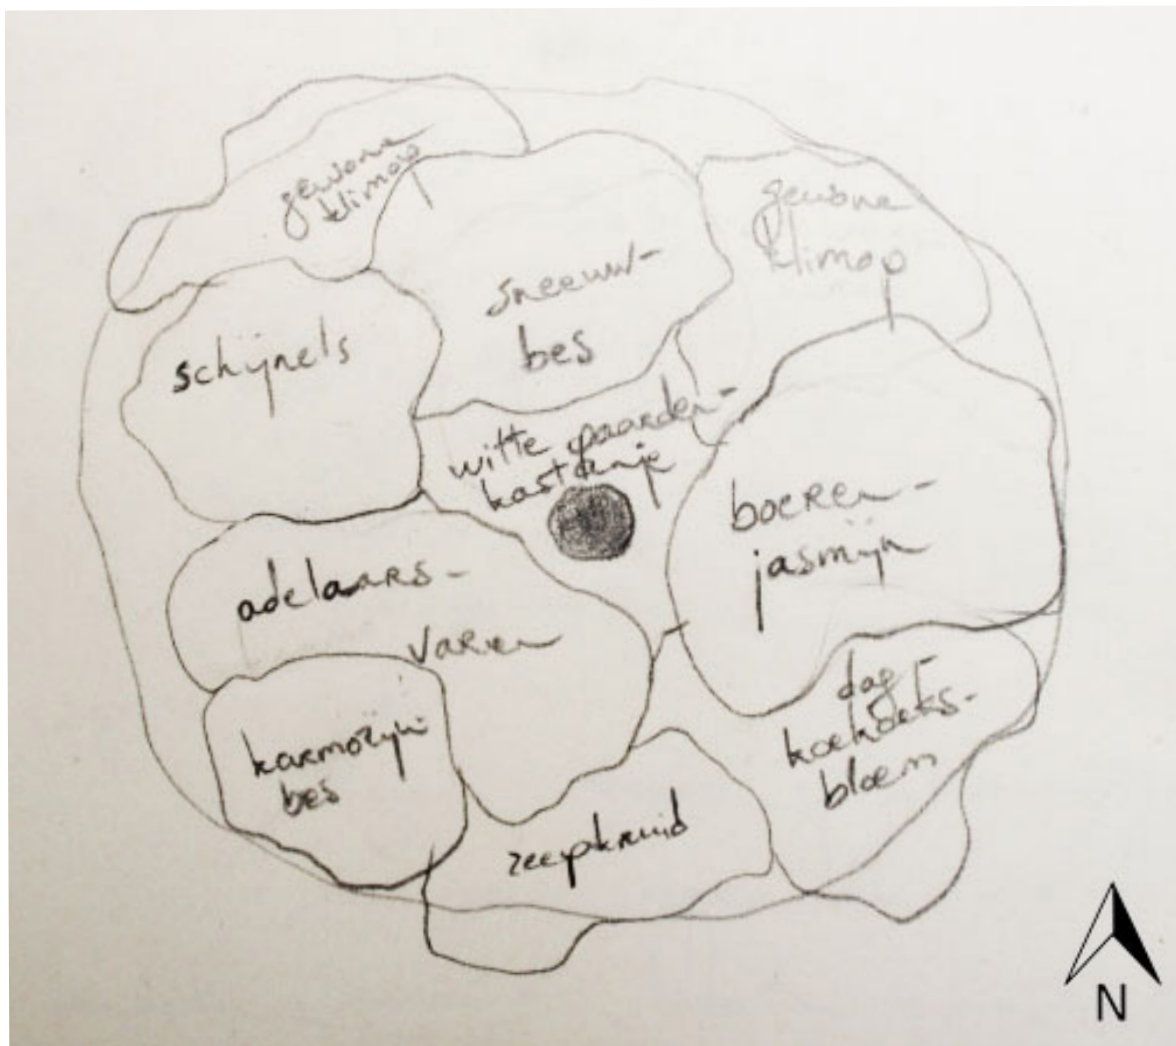 gewone
klimop
gewone
klimop
sneeuw-
bes
schijnels
witte paarden-
kastanje
boeren-
jasmijn
adelaars-
varen
dag-
koekoeks-
bloem
karmozijn-
bes
zeepkruid
N